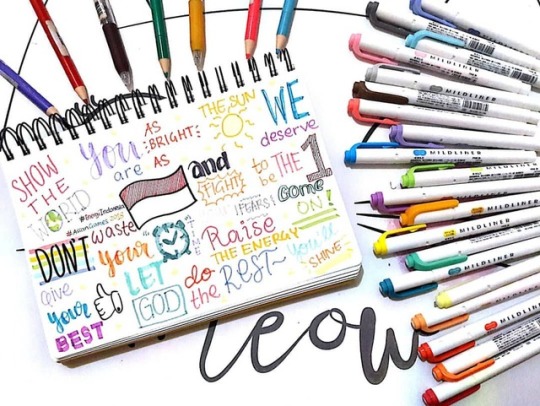 SHOW
THE
WORLD
You
are
AS
BRIGHT
AS
THE SUN
WE
deserve
to
be
THE 1
and
FIGHT
FEARS!
Come
ON!
#AsianGames
DON'T waste
your
TIME
Raise
THE ENERGY
you'll
SHINE
Give
your
BEST
LET
GOD
do
the
REST~
MILDLINER
MILDLINER
MILDLINER
MILDLINER
MILDLINER
MILDLINER
MILDLINER
eow